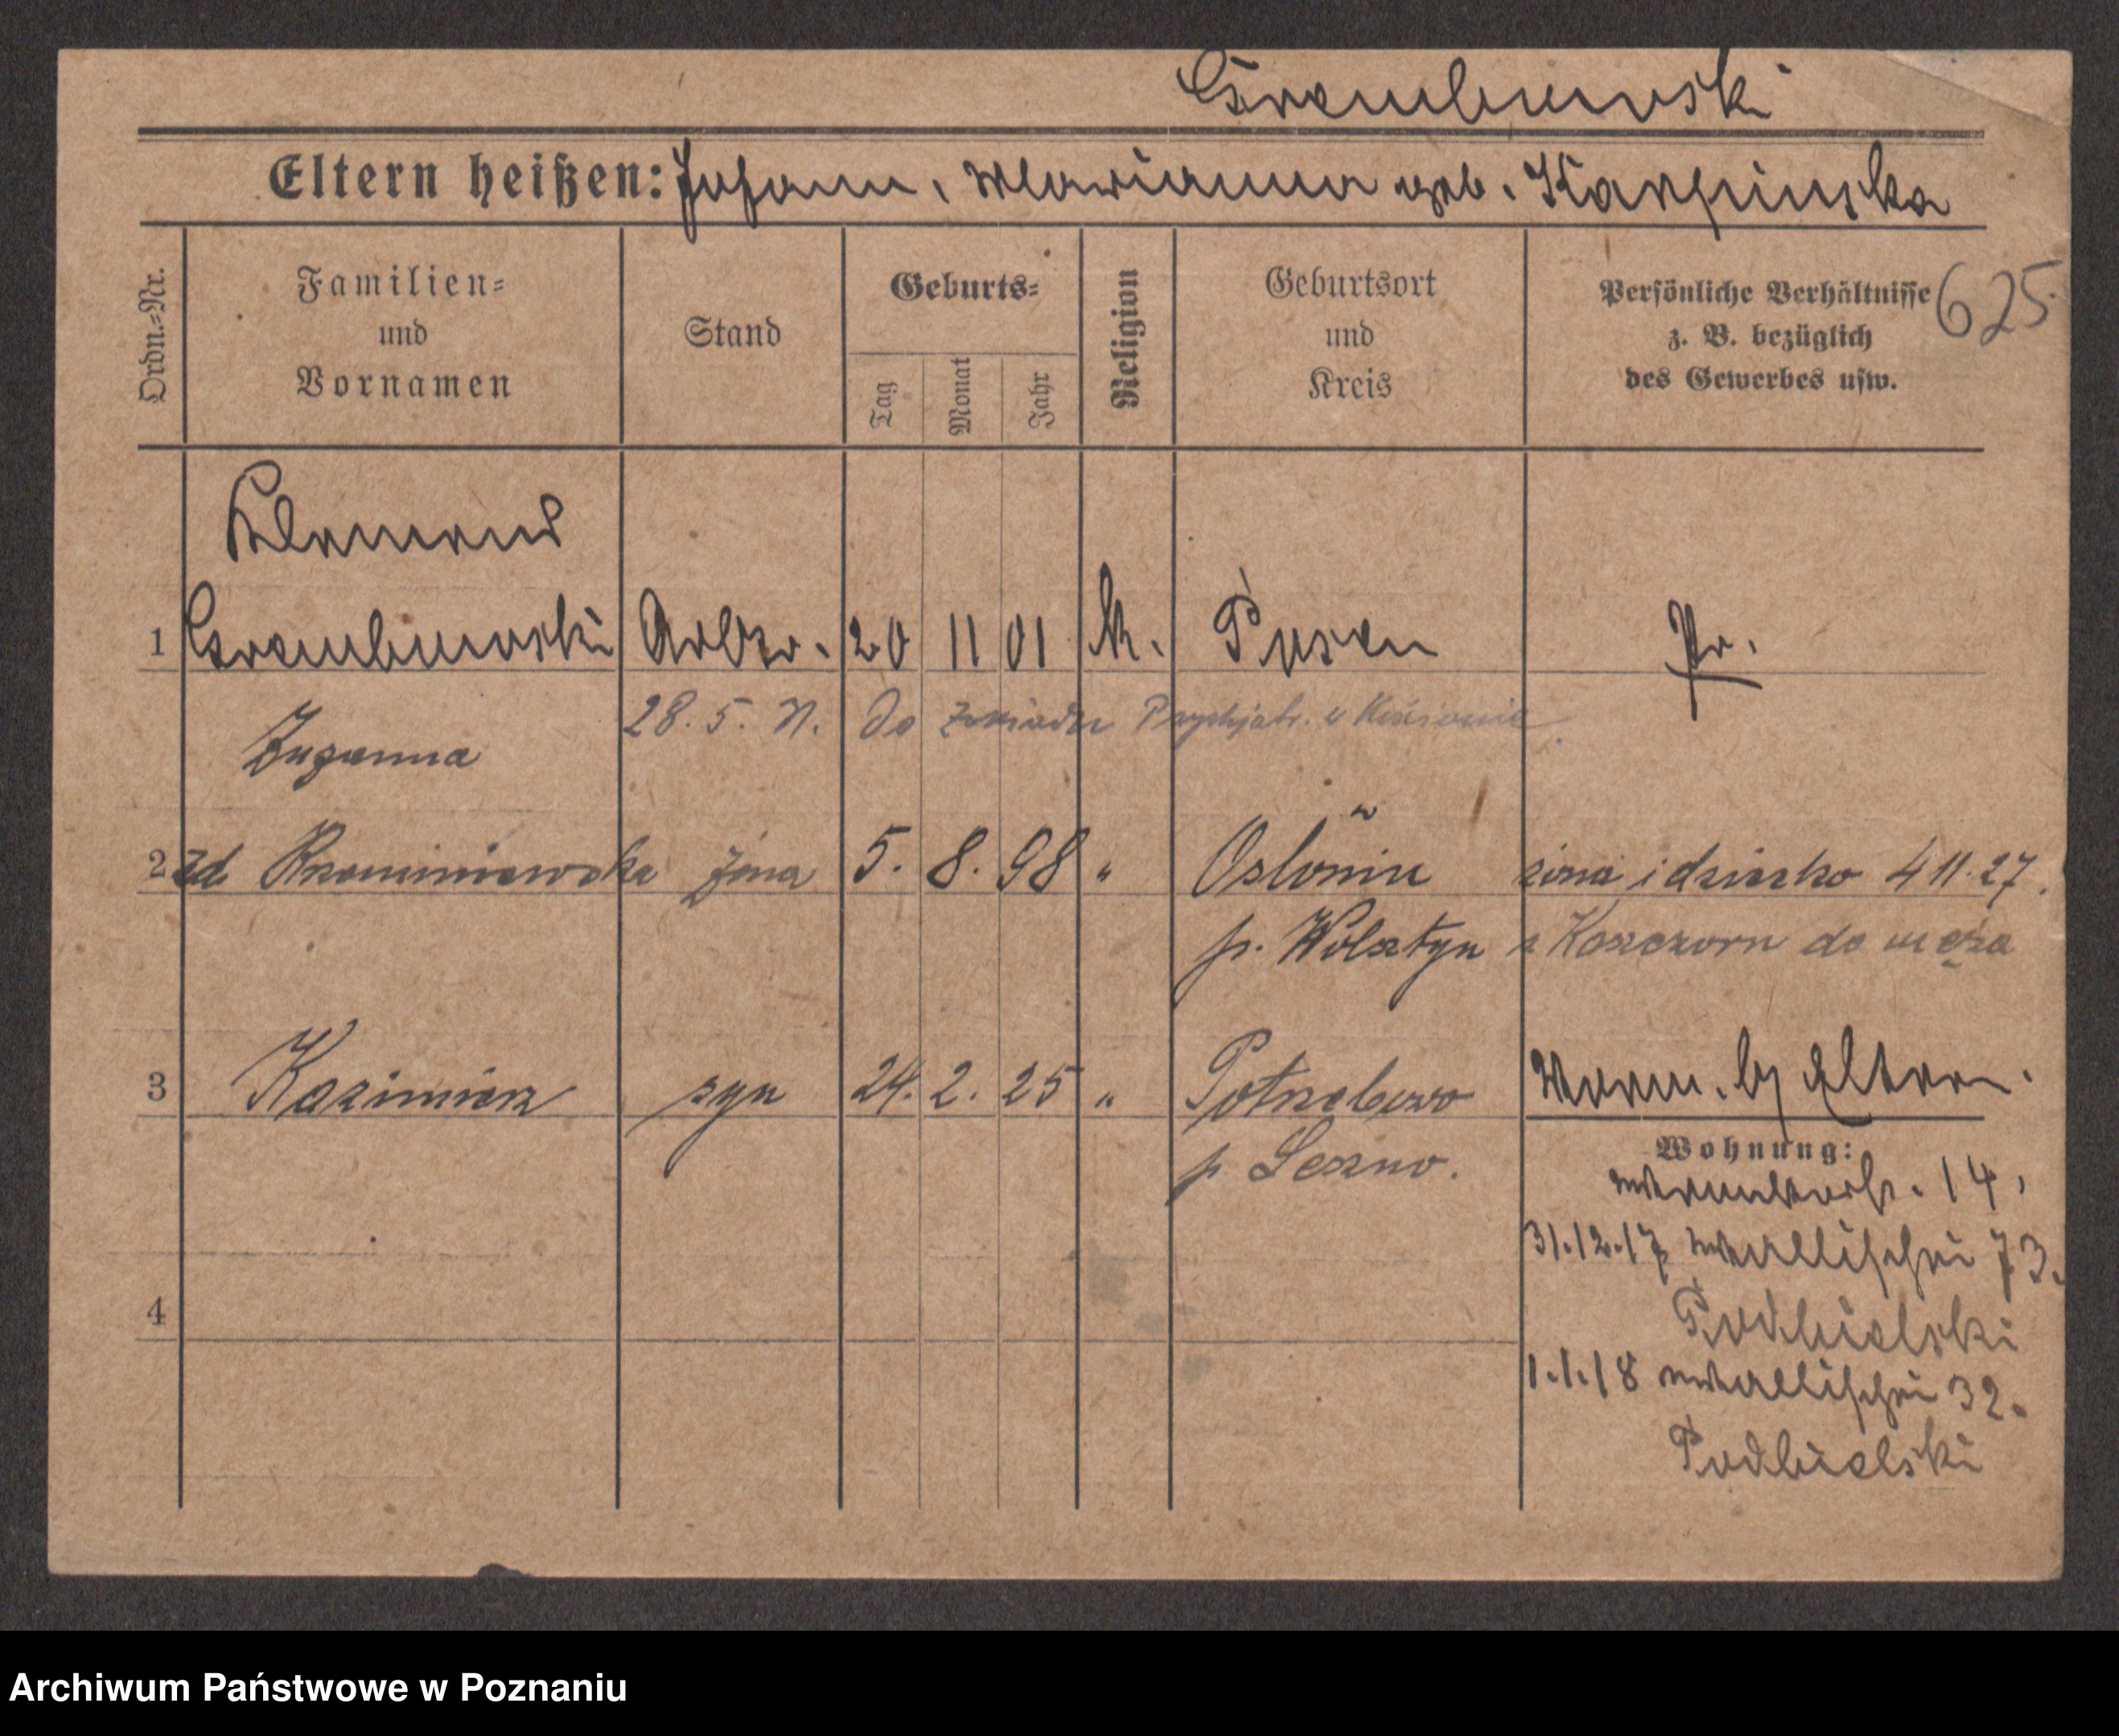 Grembowski
Eltern heißen: Johann, Marianna geb. Karpinska
Ordn.-Nr.
Familien-
und
Vornamen
Stand
Geburts-
Tag
Monat
Jahr
Religion
Geburtsort
und
Kreis
Persönliche Verhältnisse
z. B. bezüglich
des Gewerbes usw.
625
Klemens
1 Grembowski Arbtr. 20 11 01 k. Posen Pr.
28. 5. do Psychjatr. w Kościanie
Zuzanna
2 zd. żona 5. 8. 98 " Osłonin żona i dziecko 4 11. 27.
p. Wolsztyn z Kaszczorn do męża
3 Kazimierz syn 24. 2. 25 " Potrzebowo Warm. b/ Eltern.
p. Leszno.
Wohnung:
14,
31.12.17 Wallischei 73.
Podbielski
4
1.1.18 Wallischei 32.
Podbielski
Archiwum Państwowe w Poznaniu